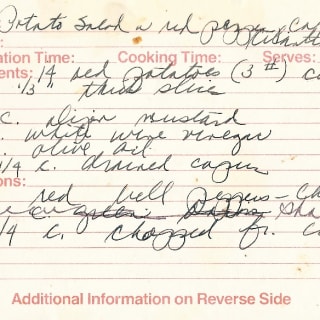 Potato Salad w red pepper, Cap
ation Time: Cooking Time: Serves:
ents: 14 red potatoes (3 #) c
1/3" thick slice
C. dijon mustard
. white wine vinegar
. olive oil
1/4 c. drained capers
ons:
red bell peppers - Ch
green
1/4 c. chopped fr. c
Additional Information on Reverse Side